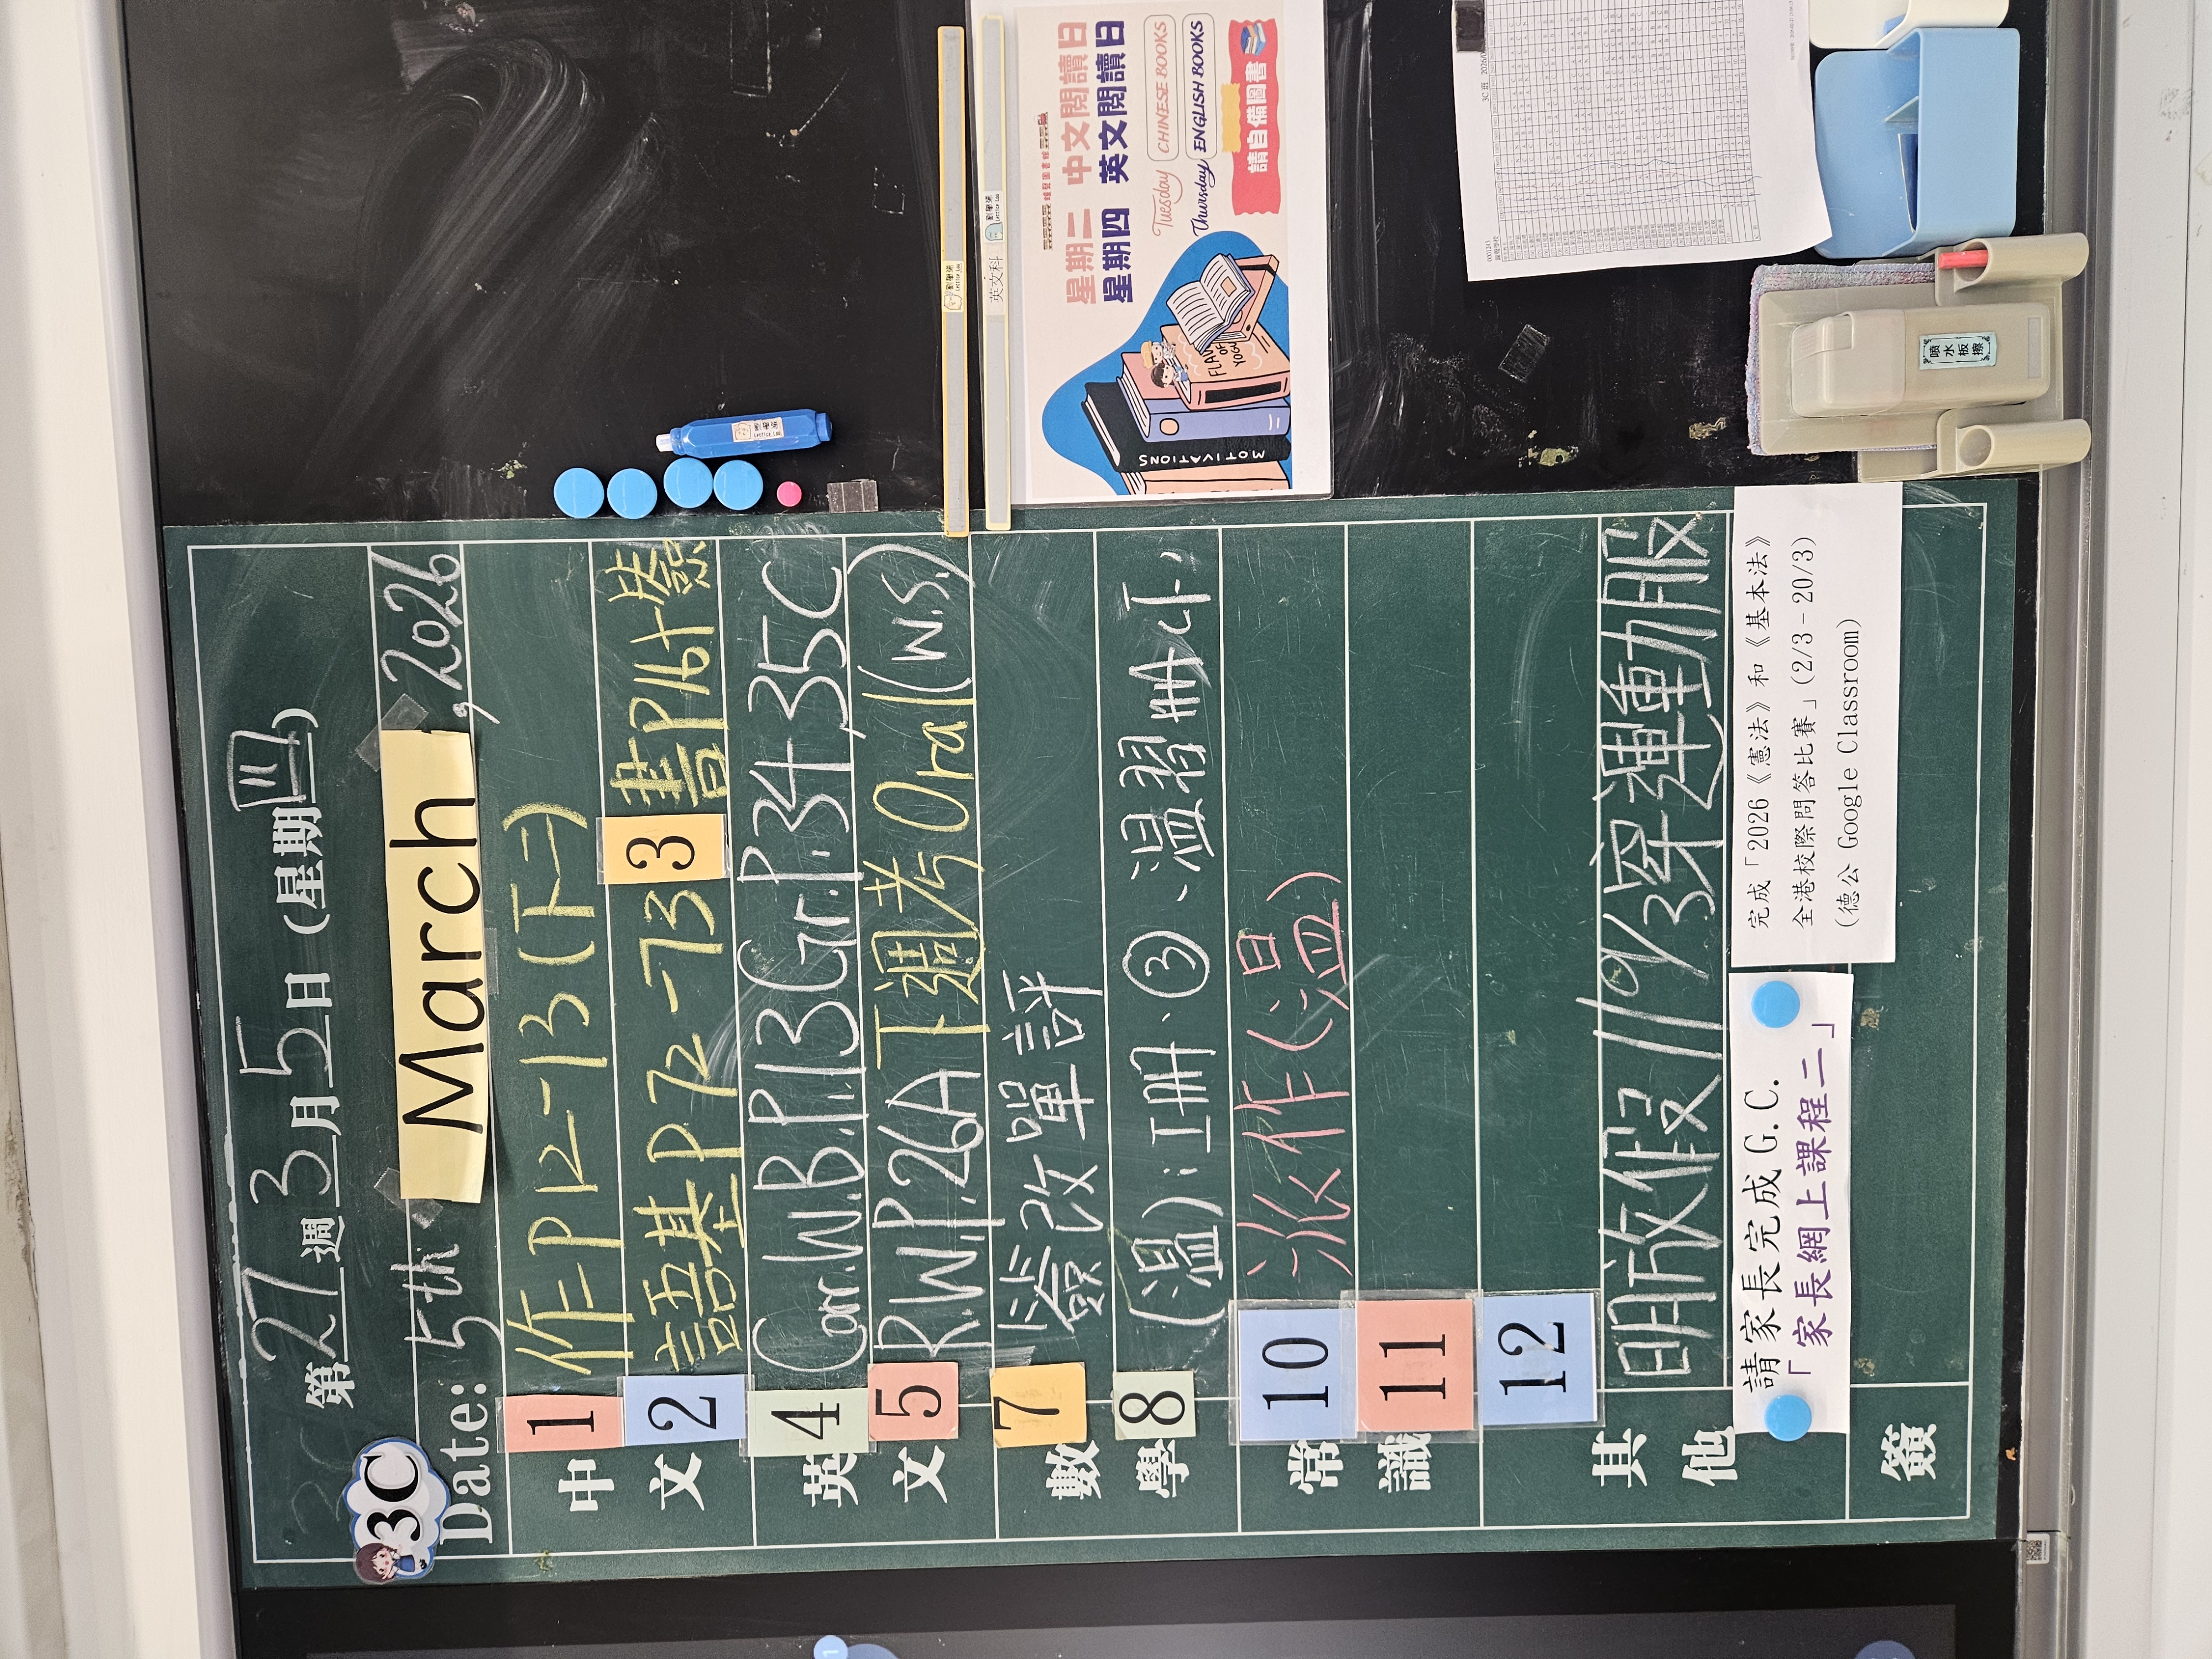 第27週3月5日(星期四)
3C
Date: 5th March, 2026
中文
1 作二P12-13(下二)
2 語基P72-73 3 書P16十簽
英文
4 Corr.W.B.P.13Gr.P.34,35C
5 R.W.P.26A下週考Oral(W.S.)
數學
7 簽改單評
8 (溫):工冊、③、溫習冊四下
常識
10 派作(溫)
11
12
其他
明放假 11/9/3穿運動服
請家長完成 G.C.
「家長網上課程二」
完成「2026《憲法》和《基本法》
全港校際問答比賽」(2/3-20/3)
(德公 Google Classroom)
簽
英文科
星期二 中文閱讀日
星期四 英文閱讀日
Tuesday CHINESE BOOKS
Thursday ENGLISH BOOKS
請自備圖書
MOTIVATIONS
喷水板擦